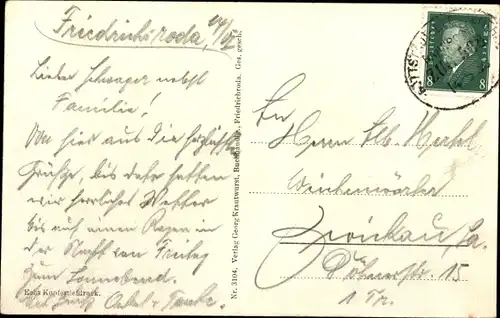 Friedrichsroda,
Lieber Schwager nebst
Familie!
Von hier aus die herzlichsten
Grüße, bis dato hatten
wir herrliches Wetter
bis auf einen Regen in
der Nacht von Freitag
zum Sonnabend.
Onkel + Tante.
Echt Kupfertiefdruck.
Nr. 3104. Verlag Georg Krautwurst, Buchhandlg., Friedrichroda. Ges. gesch.
8 8
Herrn
Zwickau, Sa.
15
1 Tr.